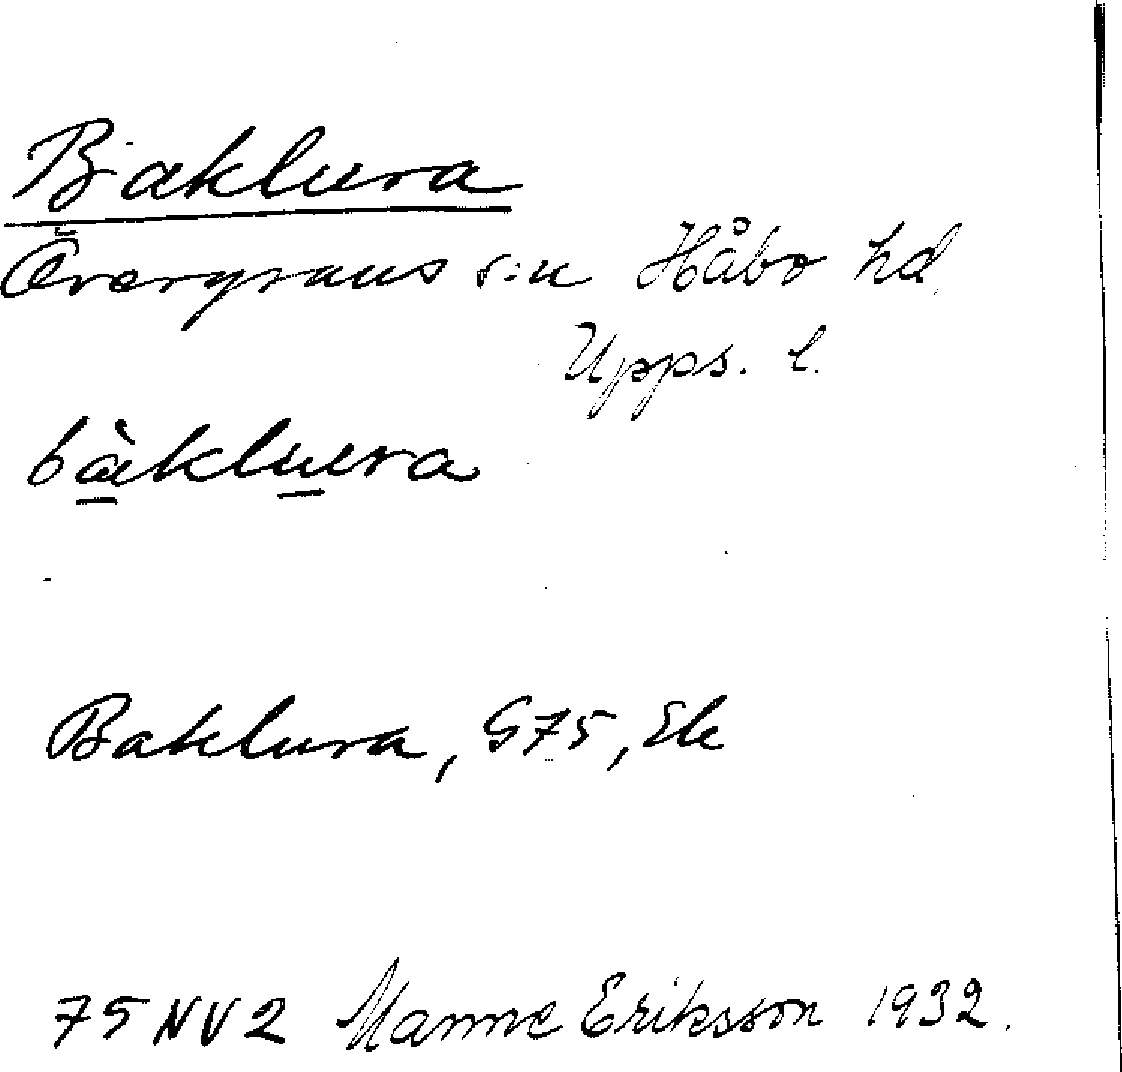 Baklura
Övergrans s:n Håbo hd.
Upps. l.
bàkluura
Baklura, G75, Ek
75 NV2 Manne Eriksson 1932.